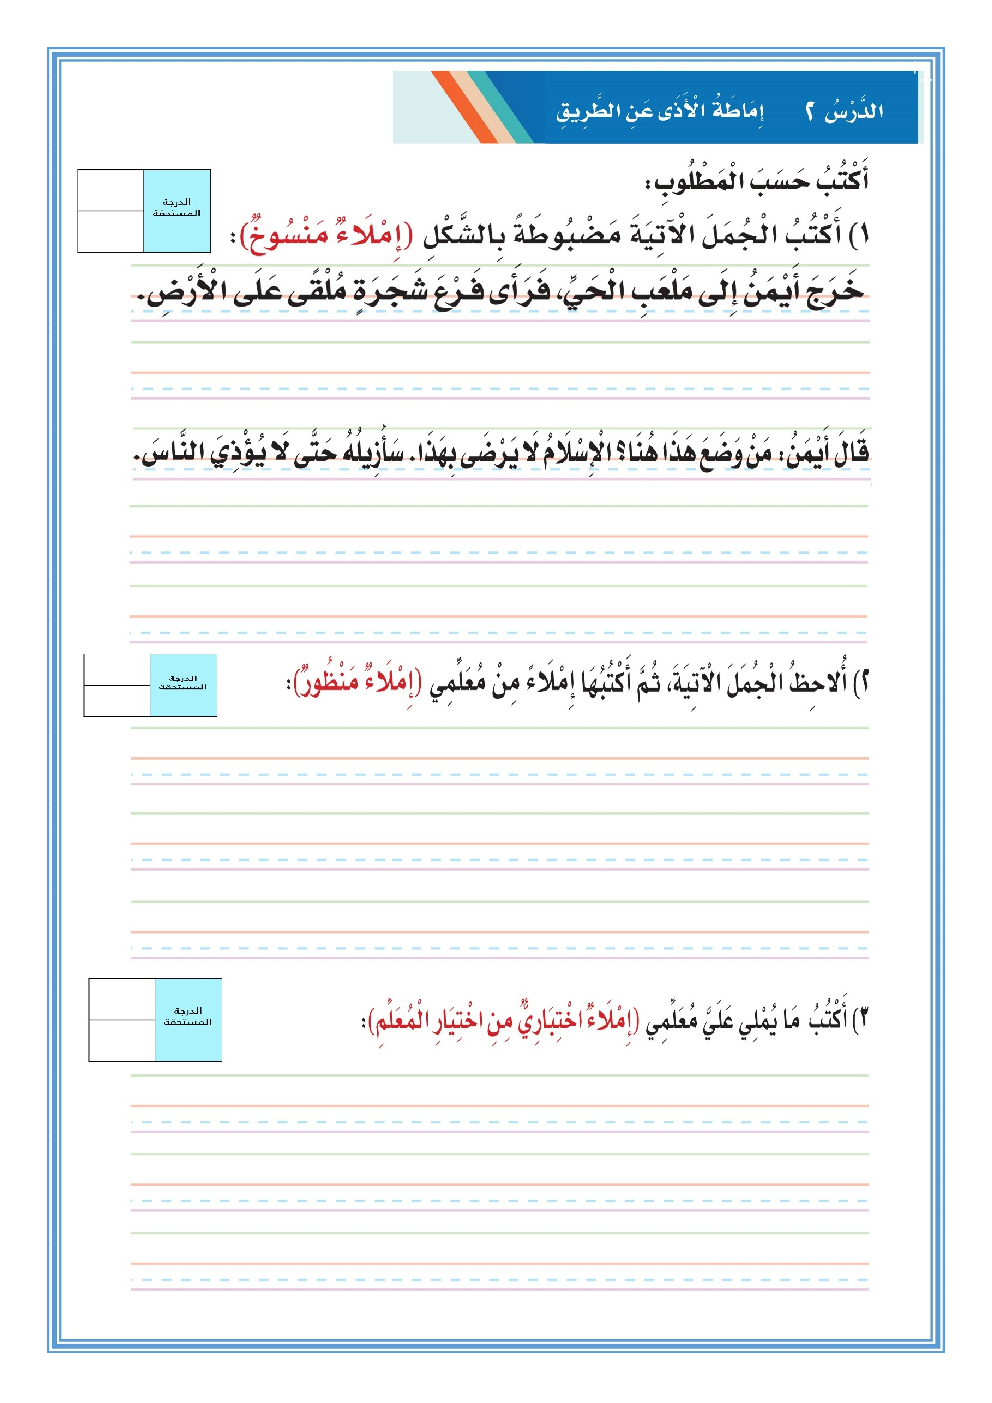 الدَّرْسُ ٢ إِمَاطَةُ الْأَذَى عَنِ الطَّرِيقِ
أَكْتُبُ حَسَبَ الْمَطْلُوبِ:
الدرجة
المستحقة
١) أَكْتُبُ الْجُمَلَ الْآتِيَةَ مَضْبُوطَةً بِالشَّكْلِ (إِمْلَاءٌ مَنْسُوخٌ):
خَرَجَ أَيْمَنُ إِلَى مَلْعَبِ الْحَيِّ، فَرَأَى فَرْعَ شَجَرَةٍ مُلْقًى عَلَى الْأَرْضِ.
قَالَ أَيْمَنُ: مَنْ وَضَعَ هَذَا هُنَا؟ الْإِسْلَامُ لَا يَرْضَى بِهَذَا. سَأُزِيلُهُ حَتَّى لَا يُؤْذِيَ النَّاسَ.
٢) أُلَاحِظُ الْجُمَلَ الْآتِيَةَ، ثُمَّ أَكْتُبُهَا إِمْلَاءً مِنْ مُعَلِّمِي (إِمْلَاءٌ مَنْظُورٌ):
الدرجة
المستحقة
٣) أَكْتُبُ مَا يُمْلِي عَلَيَّ مُعَلِّمِي (إِمْلَاءٌ اخْتِبَارِيٌّ مِنِ اخْتِيَارِ الْمُعَلِّمِ):
الدرجة
المستحقة